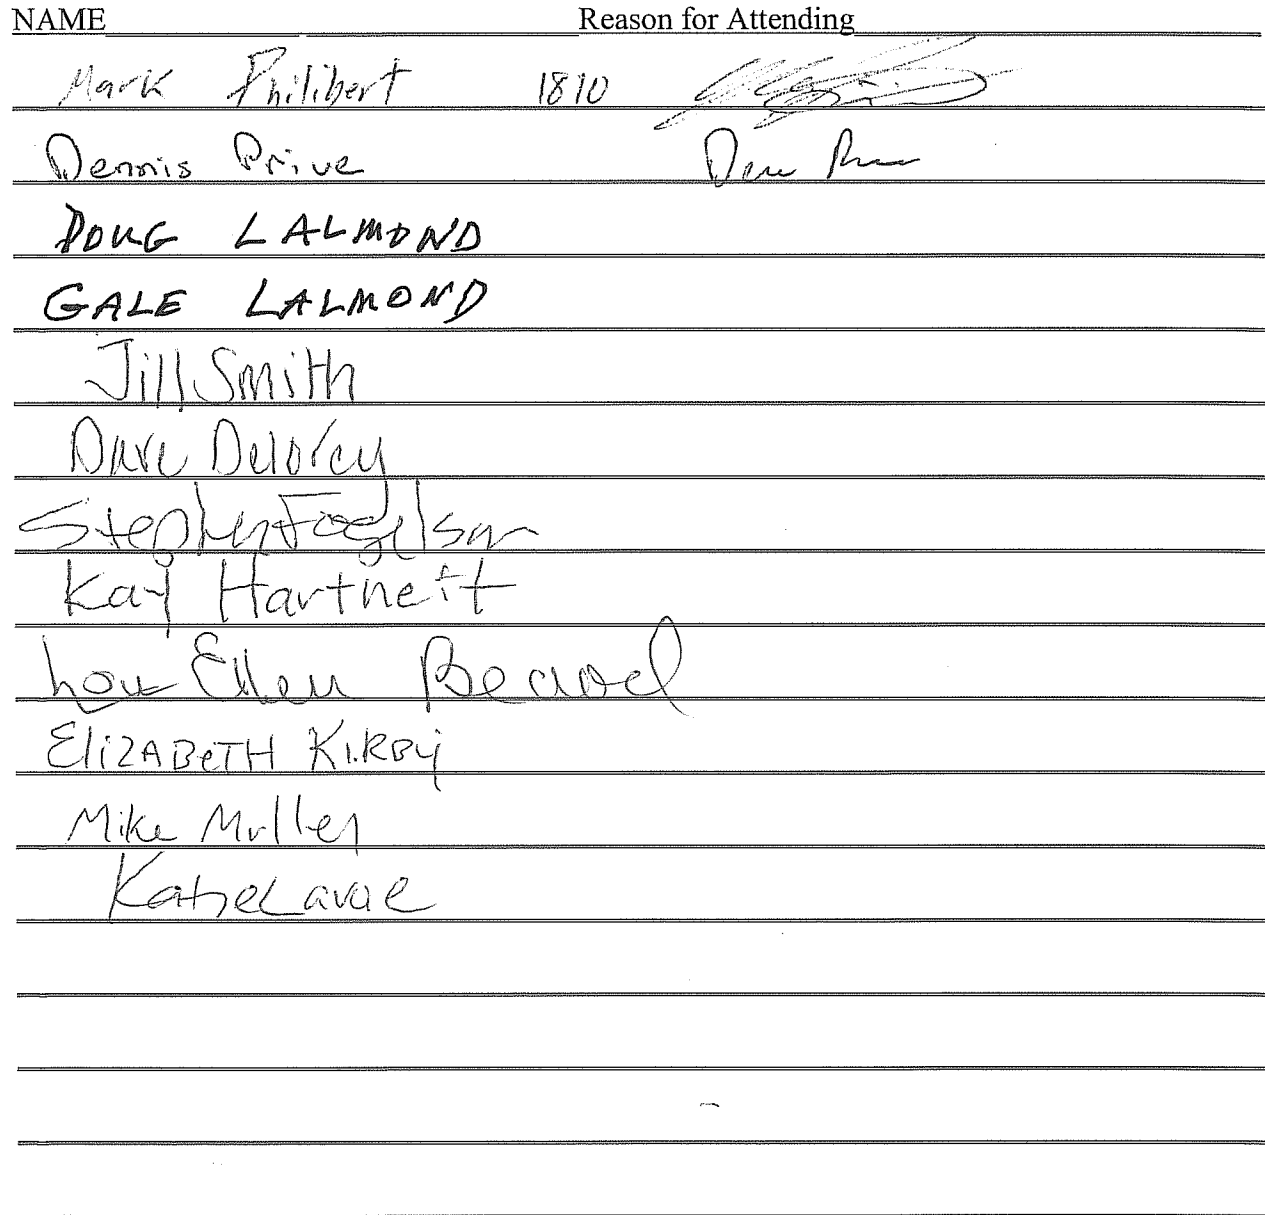 NAME Reason for Attending
Mark Philibert 1810
Dennis Prive
DOUG LALMOND
GALE LALMOND
Jill Smith
Dave Delorey
Stephen Fogelson
Kay Hartnett
Lou Ellen Beard
ElizABeTH KIRBy
Mike Mullen
Katie Lavoie